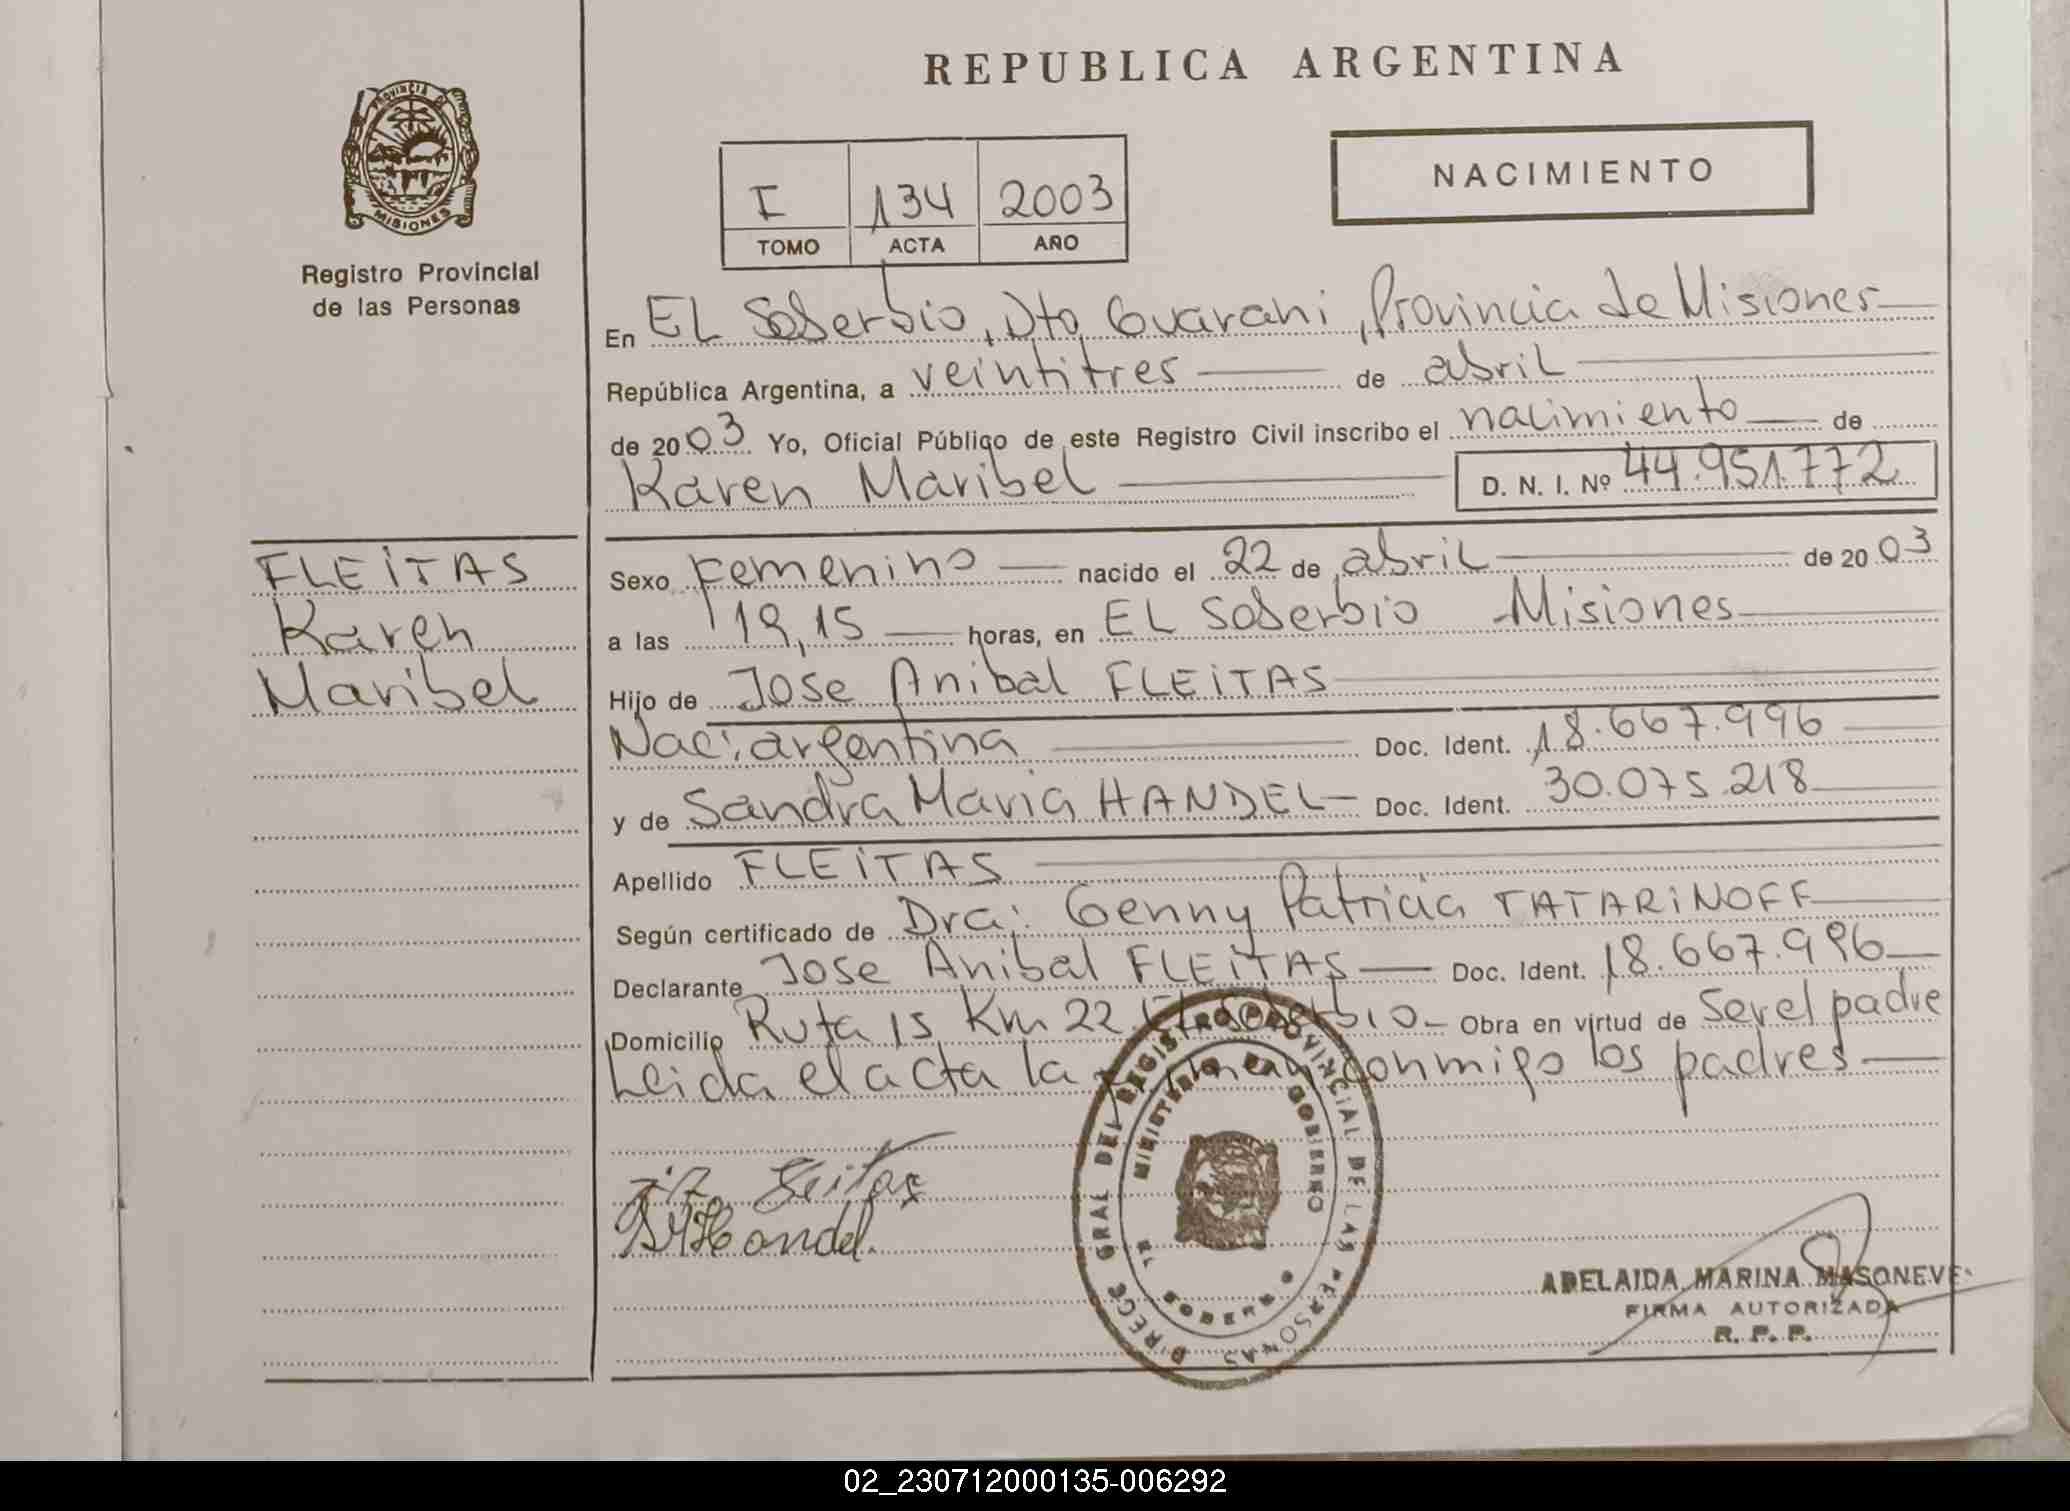 REPUBLICA ARGENTINA
PROVINCIA DE
MISIONES
Registro Provincial
de las Personas
I 134 2003
TOMO ACTA AÑO
NACIMIENTO
En EL Soberbio, Dto Guarani, Provincia de Misiones
República Argentina, a veintitres de abril
de 2003 Yo, Oficial Público de este Registro Civil inscribo el nacimiento de
Karen Maribel D. N. I. Nº 44.951.772
FLEITAS
Karen
Maribel
Sexo Femenino nacido el 22 de abril de 2003
a las 19,15 horas, en EL Soberbio Misiones
Hijo de Jose Anibal FLEITAS
Nac: argentina Doc. Ident. 18.667.996
y de Sandra Maria HANDEL Doc. Ident. 30.075.218
Apellido FLEITAS
Según certificado de Dra: Genny Patricia TATARINOFF
Declarante Jose Anibal FLEITAS Doc. Ident. 18.667.996
Domicilio Ruta 15 Km 22 El Soberbio Obra en virtud de Ser el padre
Leida el acta la firman conmigo los padres
Fleitas
Handel
DIRECC GRAL DEL REGISTRO PROVINCIAL DE LAS PERSONAS
MINISTERIO DE GOBIERNO
ADELAIDA MARINA MASONEVE
FIRMA AUTORIZADA
R. P. P.
02_230712000135-006292